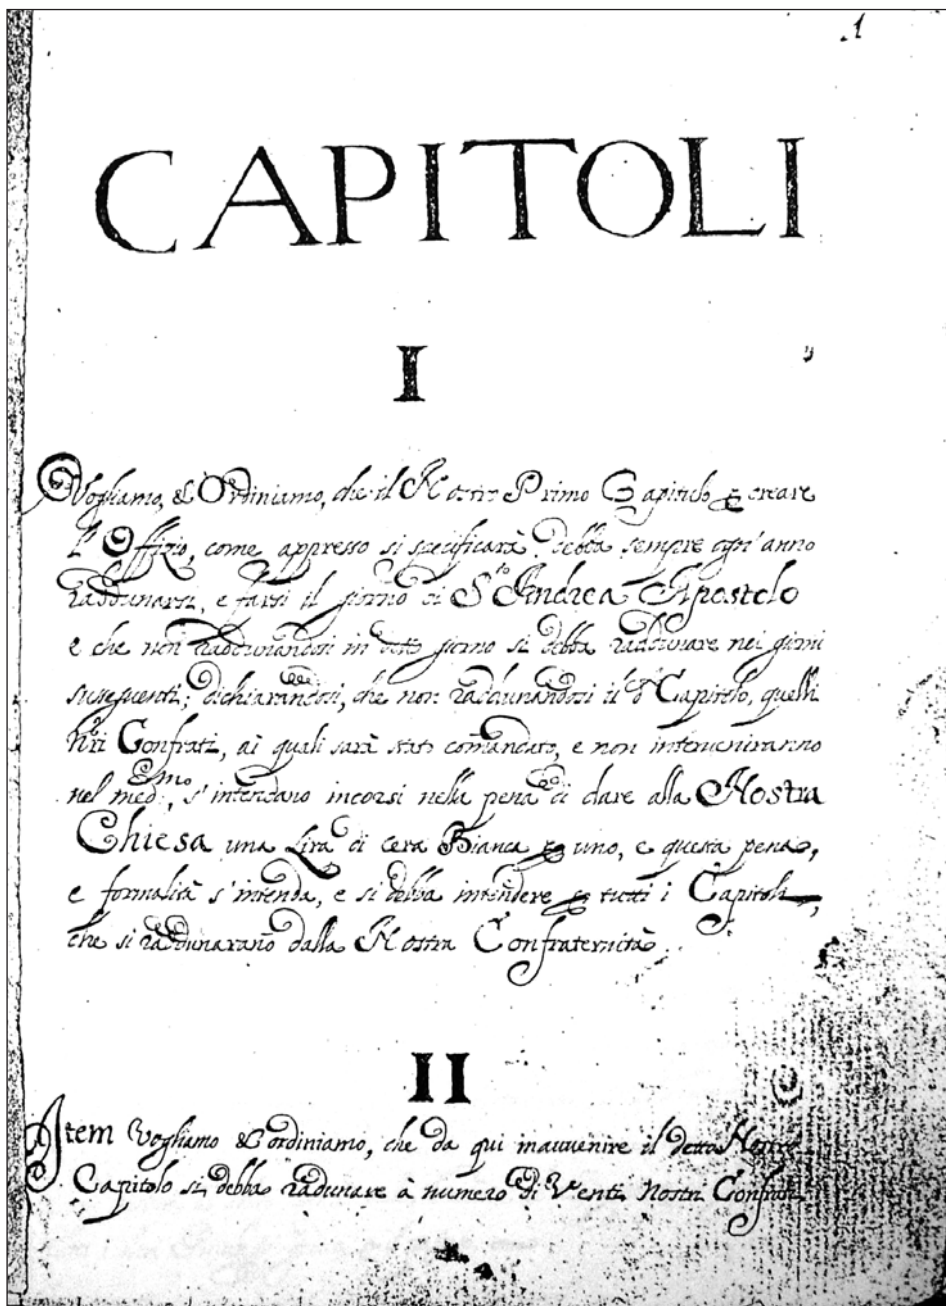 1
CAPITOLI
I
Vogliamo, & Ordiniamo, che il Nostro Primo Capitolo p creare
l'Offizio, come appresso si specificarà, debba sempre ogn'anno
raddunarsi, e farsi il giorno di S.to Andrea Apostolo
e che non raddunandosi in detto giorno si debba raddunare nei giorni
susseguenti; dichiarandosi, che non raddunandosi il d.o Capitolo, quelli
n'ri Confrati, ai quali sarà stato comandato, e non interveniranno
nel med.mo, s'intendano incorsi nella pena di dare alla Nostra
Chiesa una Lira di cera Bianca p uno, e questa pena,
e formalità s'intenda, e si debba intendere p tutti i Capitoli,
che si raddunarano dalla Nostra Confraternità.
II
Item Vogliamo & ordiniamo, che da qui inavvenire il detto Nostro
Capitolo si debba radunare à numero di Venti Nostri Confrati